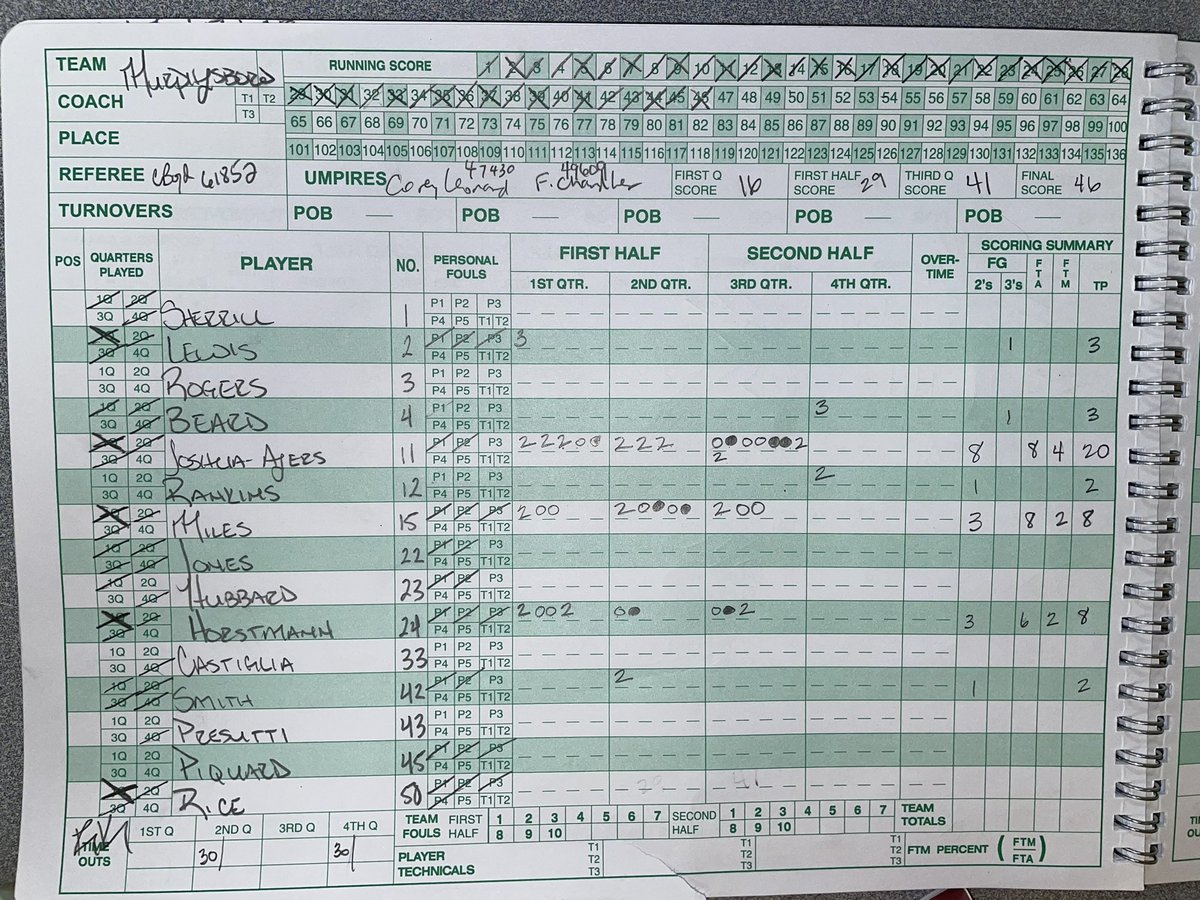 TEAM Murphysboro RUNNING SCORE 1 2 3 4 5 6 7 8 9 10 11 12 13 14 15 16 17 18 19 20 21 22 23 24 25 26 27 28
COACH T1 T2 T3 29 30 31 32 33 34 35 36 37 38 39 40 41 42 43 44 45 46 47 48 49 50 51 52 53 54 55 56 57 58 59 60 61 62 63 64
65 66 67 68 69 70 71 72 73 74 75 76 77 78 79 80 81 82 83 84 85 86 87 88 89 90 91 92 93 94 95 96 97 98 99 100
PLACE
101 102 103 104 105 106 107 108 109 110 111 112 113 114 115 116 117 118 119 120 121 122 123 124 125 126 127 128 129 130 131 132 133 134 135 136
REFEREE 61852 UMPIRES Corey Leonard 47430 F. Chandler 49609 FIRST Q SCORE 16 FIRST HALF SCORE 29 THIRD Q SCORE 41 FINAL SCORE 46
TURNOVERS POB — POB — POB — POB — POB —
POS QUARTERS PLAYED PLAYER NO. PERSONAL FOULS FIRST HALF SECOND HALF OVER-TIME SCORING SUMMARY
1ST QTR. 2ND QTR. 3RD QTR. 4TH QTR. FG 2's 3's FTA FTM TP
1Q 2Q 3Q 4Q SHERRILL 1 P1 P2 P3 P4 P5 T1 T2
1Q 2Q 3Q 4Q LEWIS 2 P1 P2 P3 P4 P5 T1 T2 3 1 3
1Q 2Q 3Q 4Q ROGERS 3 P1 P2 P3 P4 P5 T1 T2
1Q 2Q 3Q 4Q BEARD 4 P1 P2 P3 P4 P5 T1 T2 3 1 3
1Q 2Q 3Q 4Q JOSHUA-AJERS 11 P1 P2 P3 P4 P5 T1 T2 22200 222 0000002 2 8 8 4 20
1Q 2Q 3Q 4Q RANKINS 12 P1 P2 P3 P4 P5 T1 T2 2 1 2
1Q 2Q 3Q 4Q MILES 15 P1 P2 P3 P4 P5 T1 T2 200 20000 200 3 8 2 8
1Q 2Q 3Q 4Q JONES 22 P1 P2 P3 P4 P5 T1 T2
1Q 2Q 3Q 4Q HUBBARD 23 P1 P2 P3 P4 P5 T1 T2
1Q 2Q 3Q 4Q HORSTMANN 24 P1 P2 P3 P4 P5 T1 T2 2002 00 002 3 6 2 8
1Q 2Q 3Q 4Q CASTIGLIA 33 P1 P2 P3 P4 P5 T1 T2
1Q 2Q 3Q 4Q SMITH 42 P1 P2 P3 P4 P5 T1 T2 2 1 2
1Q 2Q 3Q 4Q PRESUTTI 43 P1 P2 P3 P4 P5 T1 T2
1Q 2Q 3Q 4Q PIQUARD 45 P1 P2 P3 P4 P5 T1 T2
1Q 2Q 3Q 4Q RICE 50 P1 P2 P3 P4 P5 T1 T2 29 41
TIME OUTS 1ST Q 2ND Q 3RD Q 4TH Q TEAM FOULS FIRST HALF 1 2 3 4 5 6 7 8 9 10 SECOND HALF 1 2 3 4 5 6 7 8 9 10 TEAM TOTALS
30 30 PLAYER TECHNICALS T1 T2 T3 T1 T2 T3 T1 T2 T3 FTM PERCENT (FTM/FTA)